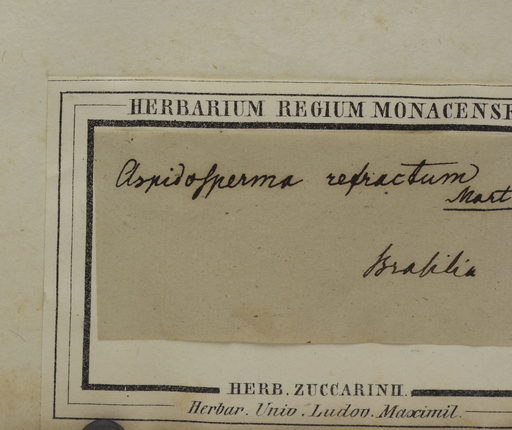 HERBARIUM REGIUM MONACENSE
Aspidosperma refractum
Mart
Brasilia
HERB. ZUCCARINII.
Herbar. Univ. Ludov. Maximil.